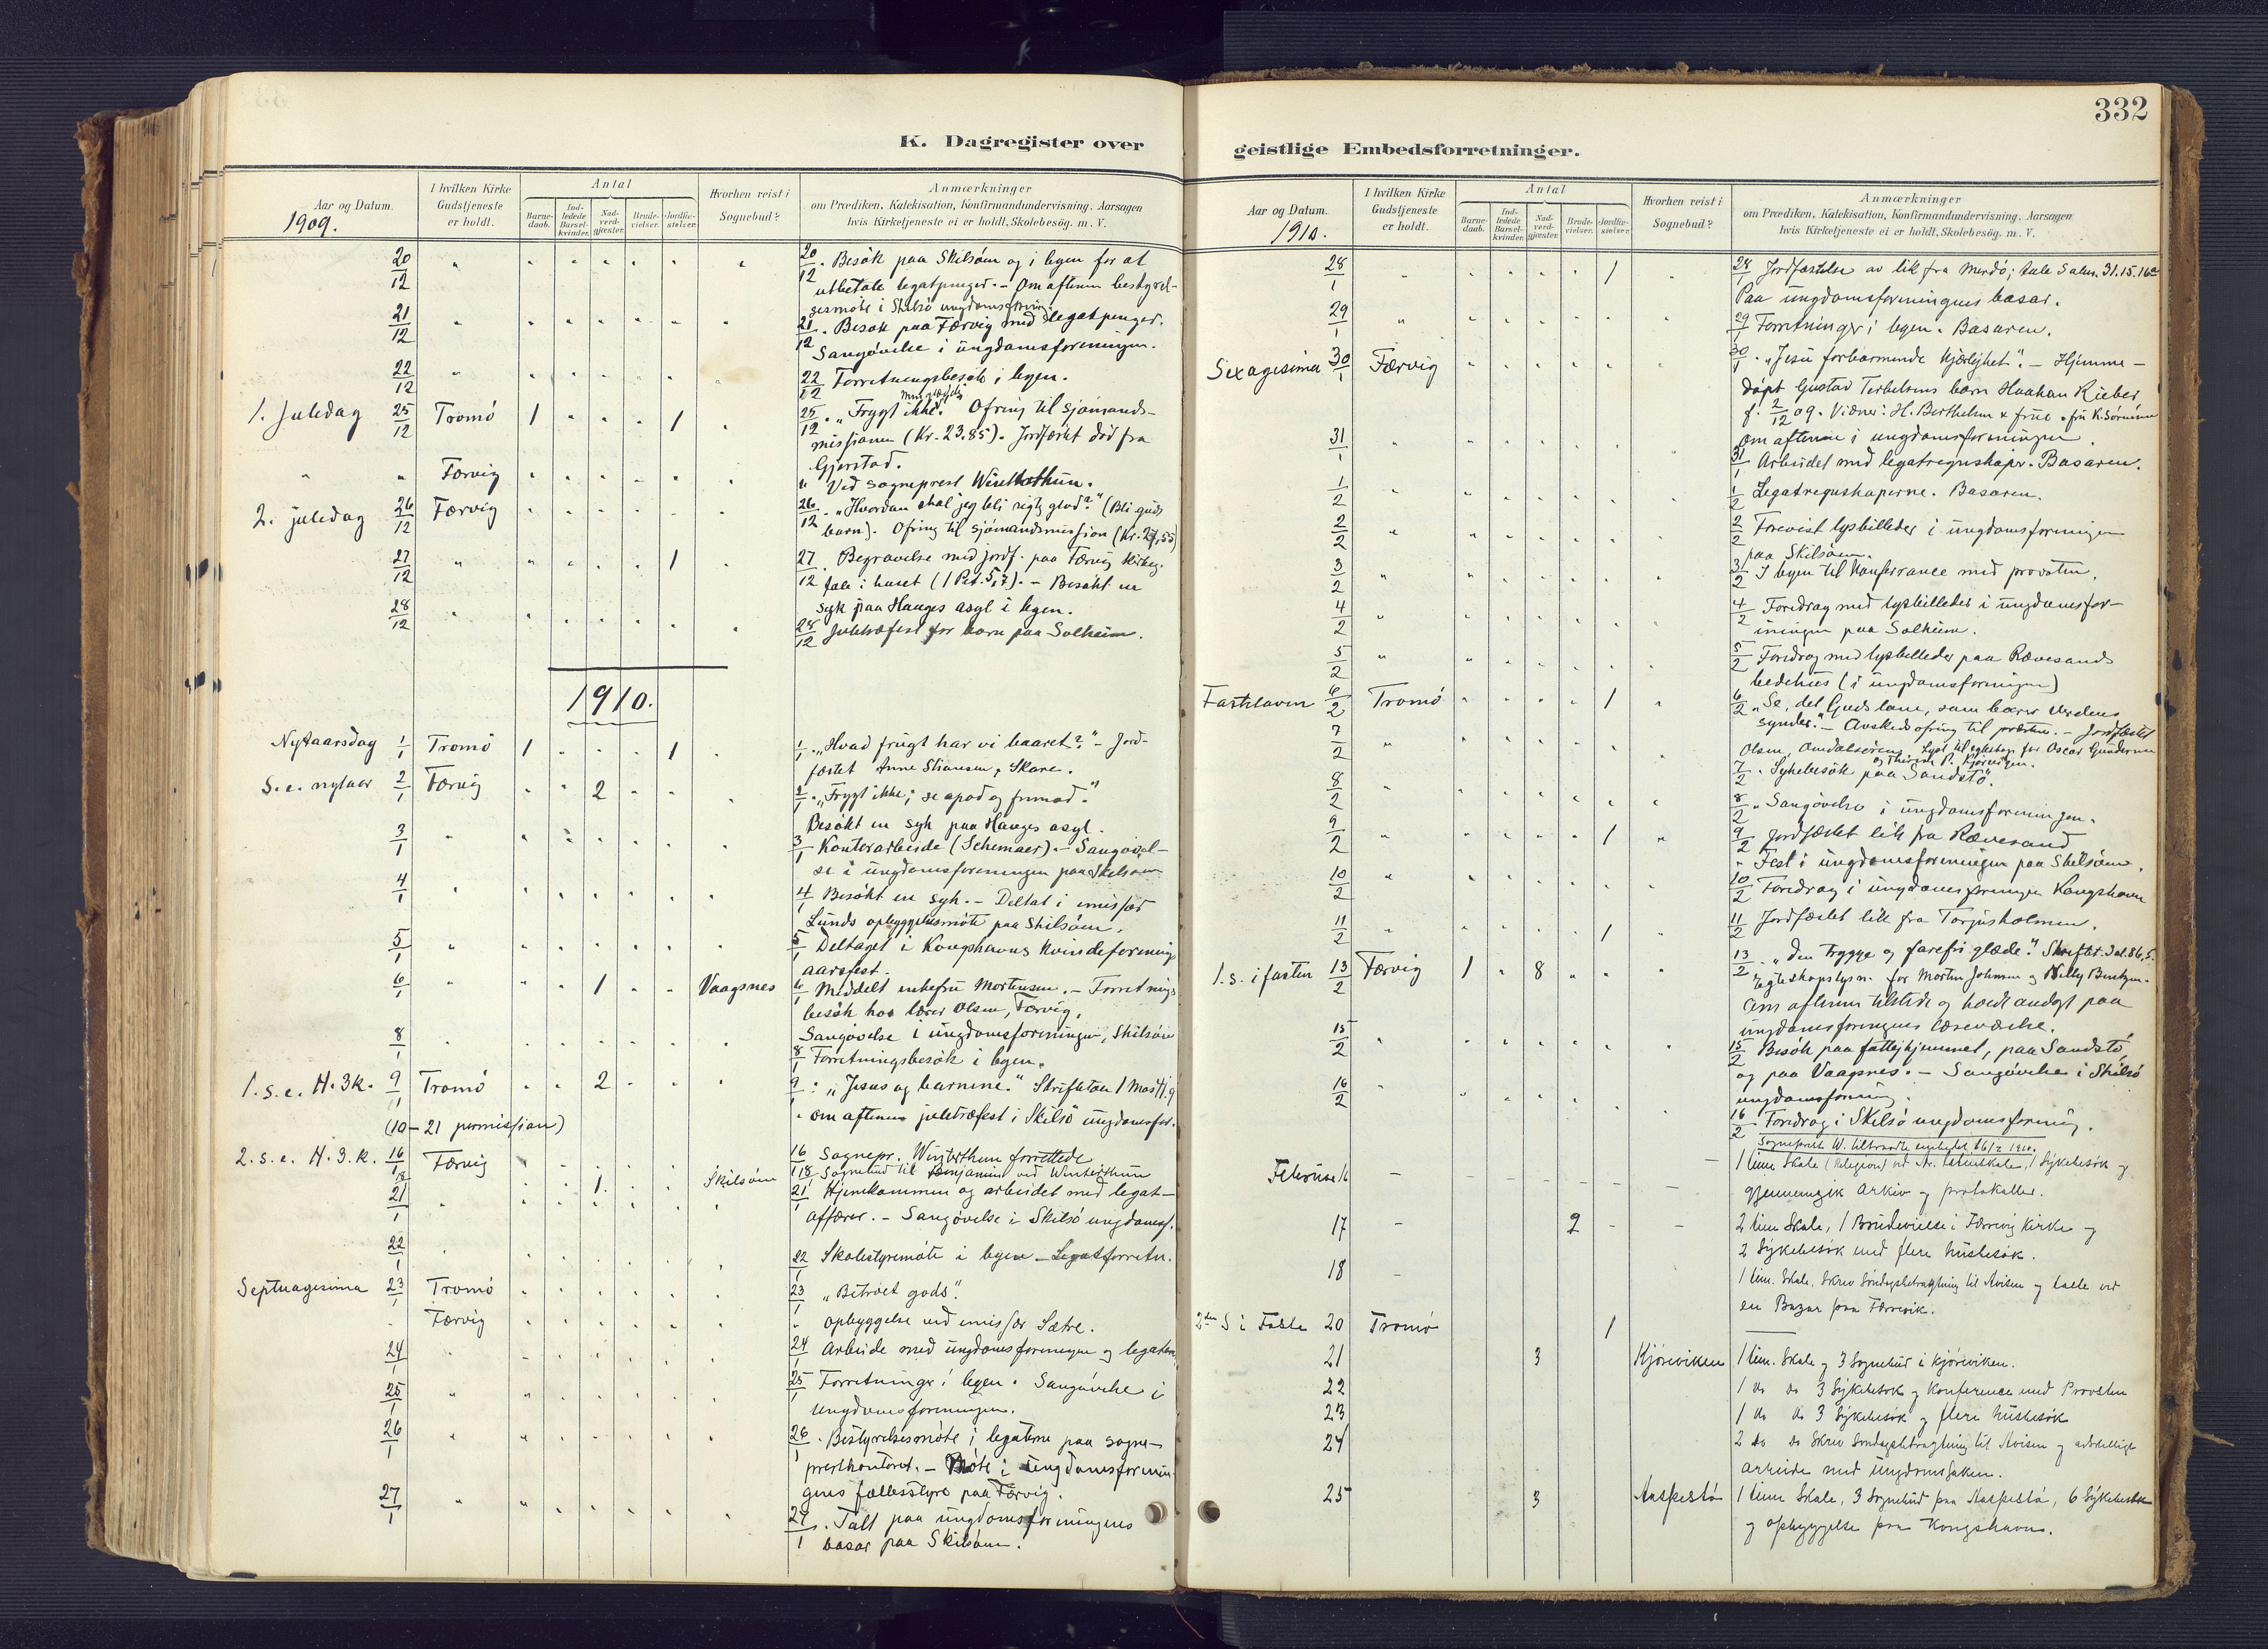 332
K. Dagregister over
geistlige Embedsforretninger.
Aar og Datum.
1909.
I hvilken Kirke Gudstjeneste er holdt.
Antal
Barne-daab.
Ind-ledede Barsel-kvinder.
Nad-verd-gjæster.
Brude-vielser.
Jordfæ-stelser.
Hvorhen reist i Sognebud?
Anmærkninger
om Prædiken, Katekisation, Konfirmandundervisning. Aarsagen
hvis Kirketjeneste ei er holdt. Skolebesøg. m. V.
20/12 " " " " " " " 20/12. Besøk paa Skilsøen og i byen for at
utbetale legatpenger. - Om aftenen bestyrel-
sesmøte i Skilsø ungdomsforening.
21/12 " " " " " " " 21/12. Besøk paa Færvig med legatpenger.
Sangøvelse i ungdomsforeningen.
22/12 " " " " " " 22/12 Forretningsbesøk i byen.
1. Juledag 25/12 Tromø 1 " " " 1 25/12. "Frygt ikke." Ofring til sjømands-
missionen (Kr. 23.85). Jordfæstet død fra
Gjerstad.
" " Færvig " " " " " " " Ved sogneprest Winterthun.
2. juledag 26/12 Færvig " " " " " " 26/12. "Hvordan skal jeg bli rigtig glad?" (Bli guds
barn). Ofring til sjømandsmission (Kr. 27,55)
27/12 " " " " " 1 " 27/12. Begravelse med jordf. paa Færvig kirkeg.
tale i huset (1 Pet. 5,7). - Besøkt en
syk paa Hauges asyl i byen.
28/12 " " " " " " " 28/12 Juletræfest for barn paa Solheim.
1910.
Nytaarsdag 1/1 Tromø 1 " " " 1 1/1. "Hvad frugt har vi baaret?" - Jord-
fæstet Anne Stiansen, Skare.
S. e. nytaar 2/1 Færvig " " 2 " " " 2/1. "Frygt ikke; se apad og fremad."
Besøkt en syk paa Hauges asyl.
3/1 " " " " " " " 3/1 Kontorarbeide (Schemaer). - Sangøvel-
se i ungdomsforeningen paa Skilsøen
4/1 " " " " " " " 4/1 Besøkt en syk. - Deltat i emissær
Lunds opbyggelsesmøte paa Skilsøen.
5/1 " " " " " " " 5/1 Deltaget i Kongshavns kvindeforenings
aarsfest.
6/1 " " " 1 " " Vaagsnes 6/1 Meddelt enkefru Mortensen. - Forretnings
besøk hos lærer Olsen, Færvig.
Sangøvelse i ungdomsforeningen, Skilsøen
8/1 " " " " " " " 8/1 Forretningsbesøk i byen.
1. s. e. H. 3k. 9/1 Tromø " " 2 " " " 9/1: "Jesus og barnene." Skriftetale 1 Mos 4.9
(10 - 21 permission) " Om aftenen juletræfest i Skilsø ungdomsfor.
2. s. e. H. 3. k. 16/1 Færvig " " " " " 16/1 Sognepr. Winterthun forrettede
18 " " 1 " " Skilsøen 18/1 Sognebud til Benjamin ved Winterthun
21/1 " " " " " " " 21/1 Hjemkommen og arbeidet med legat-
affærer. - Sangøvelse i Skilsø ungdomsf.
22/1 " " " " " " " 22/1 Skolestyremøte i byen - Legatforretn.
Septuagesima 23/1 Tromø " " " " " " 23/1 "Betroet gods."
" Færvig " " " " " " " opbyggelse ved emissær Sætre.
24/1 " " " " " " " 24/1 Arbeide med ungdomsforeningen og legaten
25/1 " " " " " " " 25/1 Forretninger i byen. Sangøvelse i
ungdomsforeningen.
26/1 " " " " " " " 26/1. Bestyrelsesmøte i legaterne paa sogne-
prestkontoret. - Møte i ungdomsforenin-
gens fællesstyre paa Færvig.
27/1 " " " " " " " 27/1. Talt paa ungdomsforeningens
basar paa Skilsøen.
Aar og Datum.
1910.
I hvilken Kirke Gudstjeneste er holdt.
Antal
Barne-daab.
Ind-ledede Barsel-kvinder.
Nad-verd-gjæster.
Brude-vielser.
Jordfæ-stelser.
Hvorhen reist i Sognebud?
Anmærkninger
om Prædiken, Katekisation, Konfirmandundervisning. Aarsagen
hvis Kirketjeneste ei er holdt, Skolebesøg. m. V.
28/1 " " " " " 1 " 28/1 Jordfæstelse av lik fra Merdø; tale Salm. 31.15.16a
Paa ungdomsforeningens basar.
29/1 " " " " " " " 29/1 Forretninger i byen. Basaren.
Sexagesima 30/1 Færvig " " " " " " 30/1. "Jesu forbarmende kjærlighet." - Hjemme-
døpt Gustav Terkelsens barn Haakan Rieber
f. 2/12 09. Vidner: H. Berthelsen & frue. frk K. Sørensen
Om aftenen i ungdomsforeningen.
31/1 " " " " " " " 31/1 Arbeidet med legatregnskaper. Basaren.
1/2 " " " " " " " 1/2 Legatregnskaperne. Basaren.
2/2 " " " " " " " 2/2 Forevist lysbilleder i ungdomsforeningen
paa Skilsøen.
3/2 " " " " " " " 3/2 I byen til konferrance med provsten.
4/2 " " " " " " " 4/2 Foredrag med lysbilleder i ungdomsfor-
eningen paa Solheim.
5/2 " " " " " " " 5/2 Foredrag med lysbilleder paa Rævesands
bedehus (i ungdomsforeningen)
Fastelaven 6/2 Tromø " " " " 1 " 6/2 "Se, det Guds lam, som bærer verdens
synder." - Avskedsofring til presten. - Jordfæstet
Olsen, Omdalsøren. Lyst til egteskap for Oscar Gundersen
og Therese P. Kjørvigen.
7/2 " " " " " " " 7/2. Sykebesøk paa Sandstø.
8/2 " " " " " " " 8/2 " Sangøvelse i ungdomsforeningen.
9/2 " " " " " 1 " 9/2 Jordfæstet lik fra Rævesand
" Fest i ungdomsforeningen paa Skilsøen.
10/2 " " " " " " " 10/2 Foredrag i ungdomsforeningen Kongshavn
11/2 " " " " " 1 " 11/2 Jordfæstet lik fra Torjusholmen.
1. s. i fasten 13/2 Færvig 1 " 8 " " " 13/2. "Den trygge og farefri glæde." Skriftet. Sal. 86,5.
Egteskapslysn. for Morten Johnsen og Nelly Bentzen.
Om aftenen tilstede og holdt andagt paa
ungdomsforeningens læseværelse.
15/2 " " " " " " " 15/2 Besøk paa fattighjemmet, paa Sandstø
og paa Vaagsnes. - Sangøvelse i Skilsø
ungdomsforening.
16/2 " " " " " " " 16/2 Foredrag i Skilsø ungdomsforening.
Sogneprest W. tiltraadte embedet 16/2 1910.
Februar 16 - - - - - - - 1 time Skole (Religion) ved Ar. Latinskole, 1 Sykebesøk og
gjennemgik Arkiv og protokoller.
17 - 2 - - 2 time Skole, 1 Brudevielse i Færvig kirke og
2 Sykebesøk med flere husbesøk.
18 - 1 tim. Skole. Skrev Søndagsbetragtning til Avisen og talte ved
en Bazar paa Færevik.
2den S i Faste 20 Tromø 1
21 3 Kjøreviken 1 tim. Skole og 3 Sognebud i Kjøreviken.
22 1 do do 3 Sykebesøk og Konference med Provsten
23 1 do do 3 Sykebesøk og flere husbesøk
24 2 do do Skrev Søndagsbetragtning til Avisen og adskilligt
arbeide med Ungdomssaken.
25 3 Aaspestø 1 time Skole, 3 Sognebud paa Aaspestø, 6 Sykebesøk
og opbyggelse paa Kongshavn.